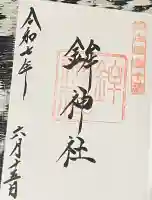 鉾神社
令和七年
六月十五日